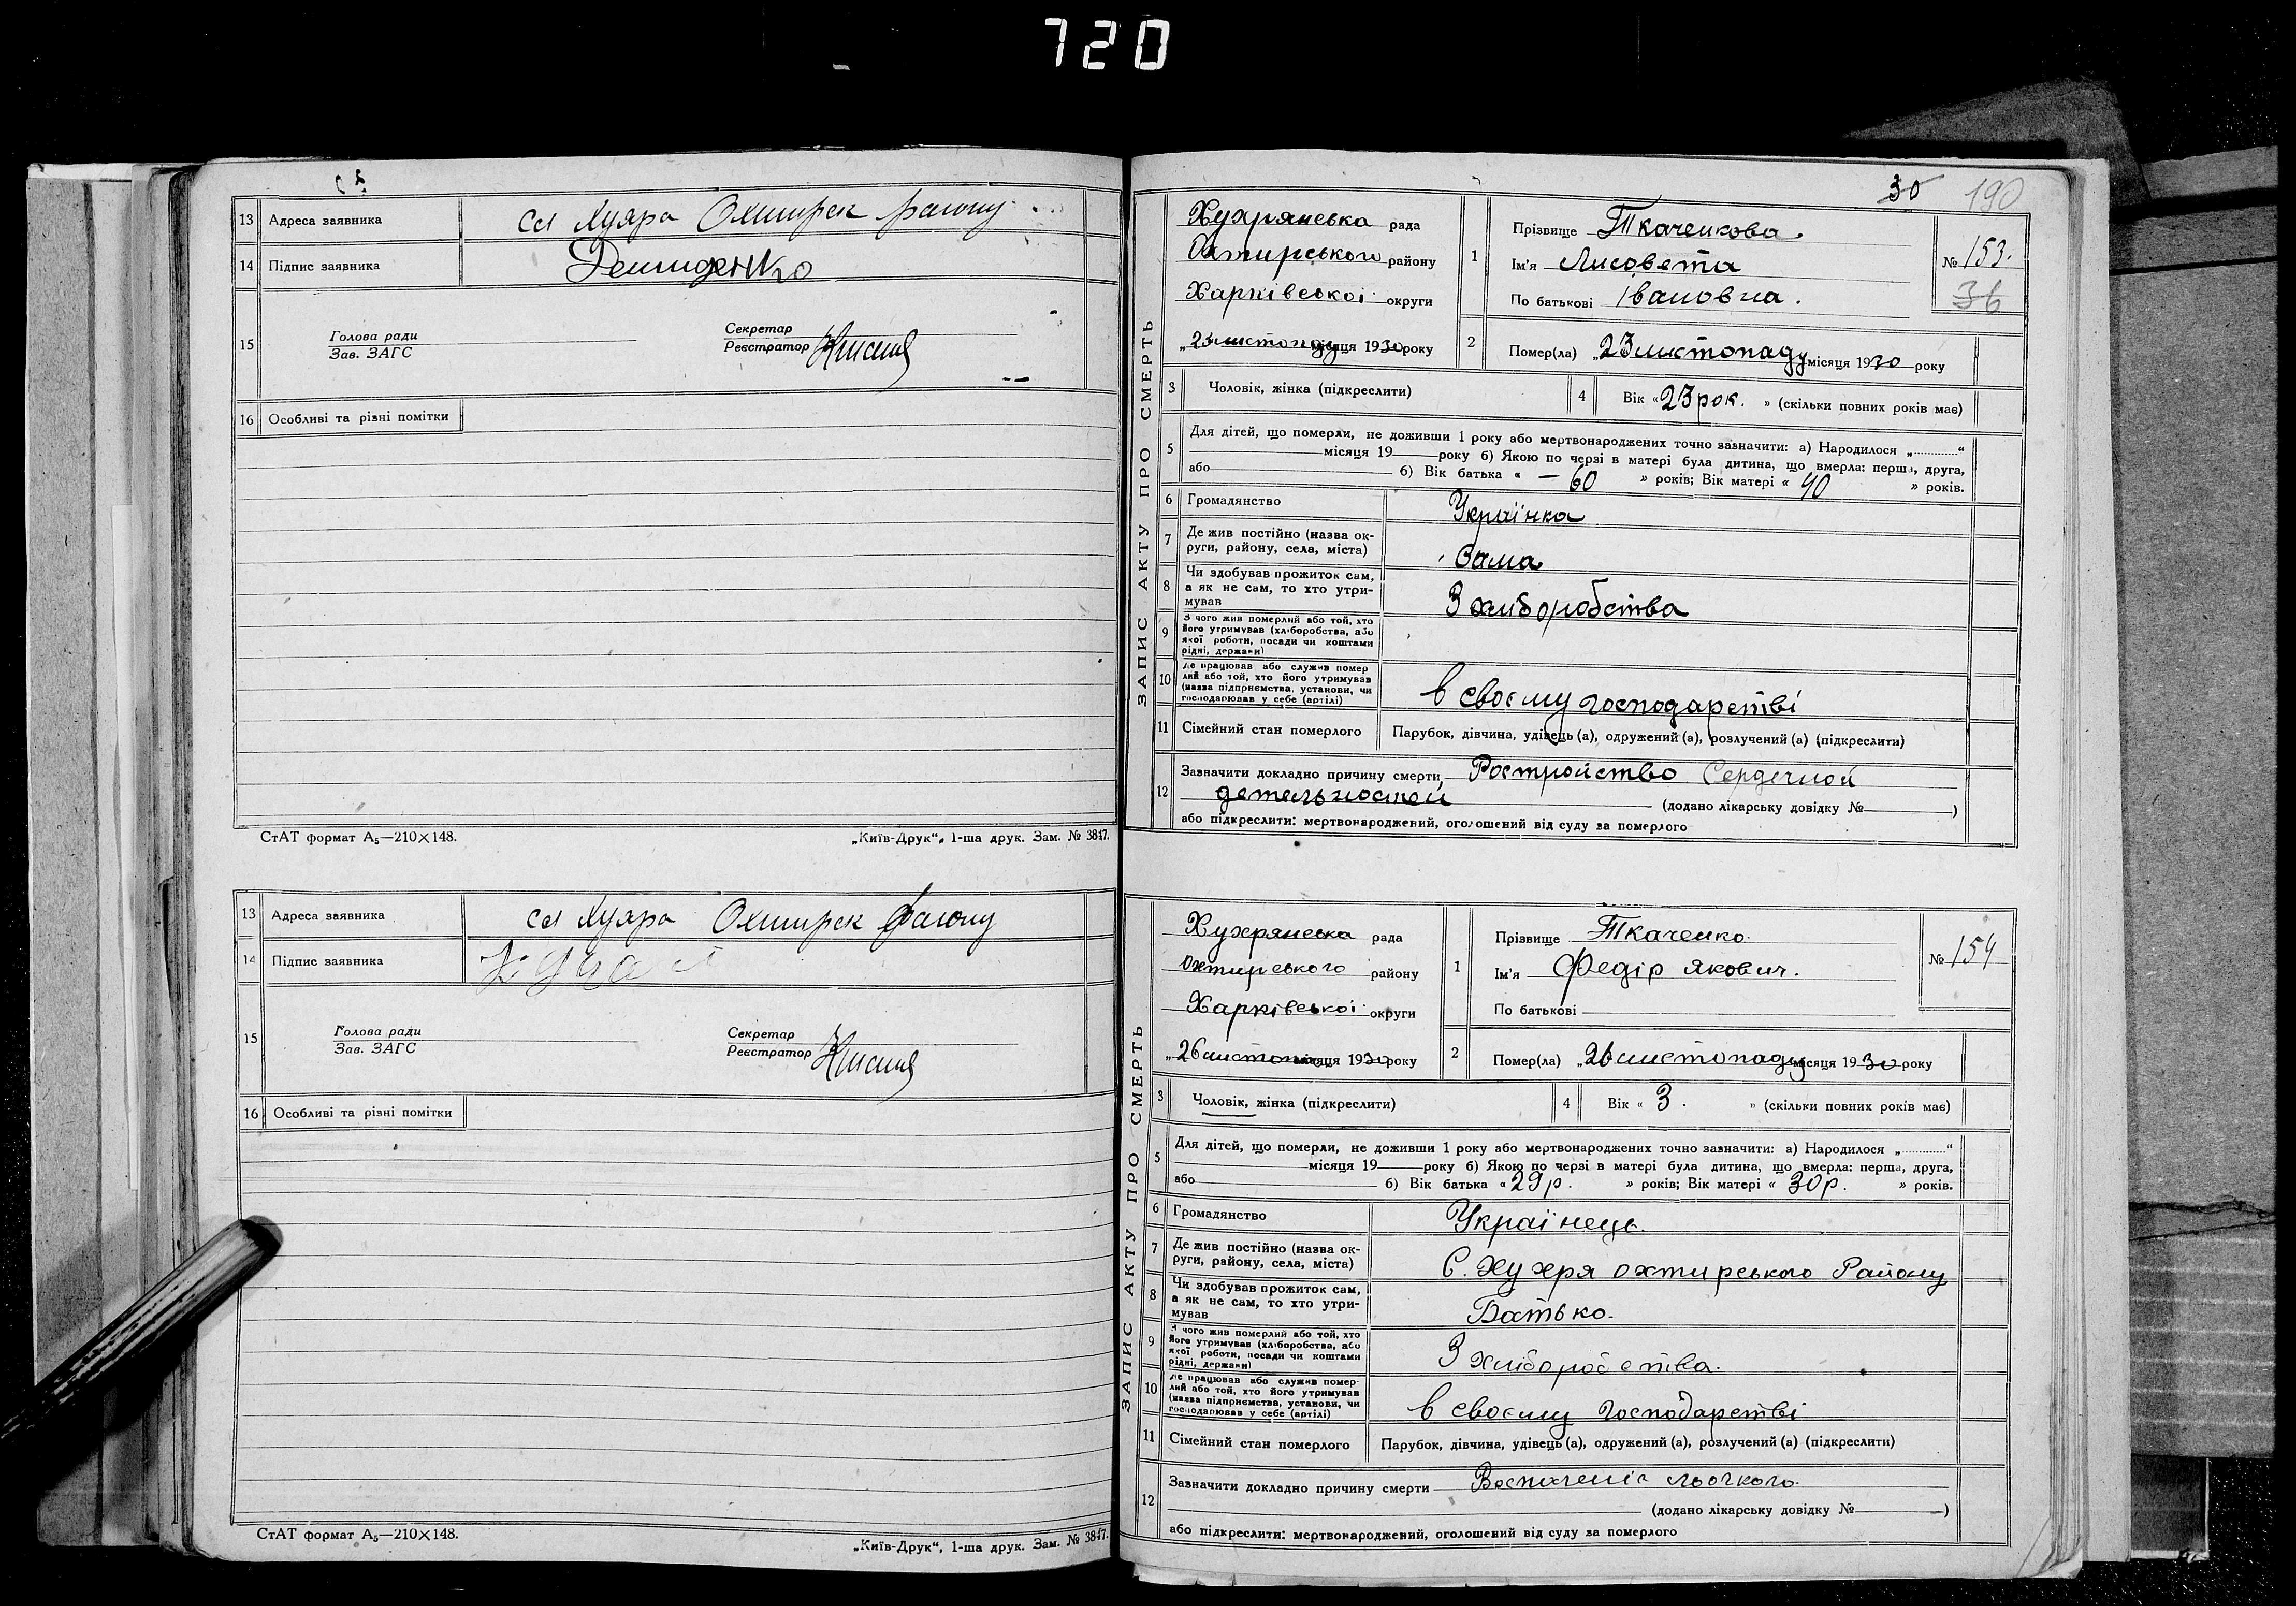 720
13 Адреса заявника сел Хухра Охтирск району
14 Підпис заявника Демиденко
15 Голова ради
Зав. ЗАГС
Секретар
Реєстратор
16 Особливі та різні помітки
СтАТ формат А₅—210×148. „Київ-Друк“, 1-ша друк. Зам. № 3847.
13 Адреса заявника сел Хухра Охтирск району
14 Підпис заявника
15 Голова ради
Зав. ЗАГС
Секретар
Реєстратор
16 Особливі та різні помітки
СтАТ формат А₅—210×148. „Київ-Друк“, 1-ша друк. Зам. № 3847.
30 190
ЗАПИС АКТУ ПРО СМЕРТЬ
Хухрянська рада
Охтирського району
Харківської округи
„23 листопаду місяця 1930 року
1 Прізвище Ткаченкова.
Ім'я Лисовета
По батькові Івановна.
№ 153.
36
2 Помер(ла) „23 листопаду місяця 1930 року
3 Чоловік, жінка (підкреслити)
4 Вік «23 рок. » (скільки повних років має)
5 Для дітей, що померли, не доживши 1 року або мертвонароджених точно зазначити: а) Народилося „............“
місяця 19 року б) Якою по черзі в матері була дитина, що вмерла: перша, друга,
або б) Вік батька « — 60 » років; Вік матері « 40 » років.
6 Громадянство Українка
7 Де жив постійно (назва округи, району, села, міста) Сама
8 Чи здобував прожиток сам, а як не сам, то хто утримував З хліборобства
9 З чого жив померлий або той, хто його утримував (хліборобства, або якої роботи, посади чи коштами рідні, держави)
10 Де працював або служив померлий або той, хто його утримував (назва підприємства, установи, чи господарював у себе (артілі) в своєму господарстві
11 Сімейний стан померлого Парубок, дівчина, удівець (а), одружений (а), розлучений (а) (підкреслити)
12 Зазначити докладно причину смерти Ростройство Сердечной
детельностей (додано лікарську довідку № )
або підкреслити: мертвонароджений, оголошений від суду за померлого
ЗАПИС АКТУ ПРО СМЕРТЬ
Хухрянська рада
Охтирського району
Харківської округи
„26 листопаду місяця 1930 року
1 Прізвище Ткаченко.
Ім'я Федір Якович.
По батькові
№ 154
2 Помер(ла) „26 листопаду місяця 1930 року
3 Чоловік, жінка (підкреслити)
4 Вік « 3. » (скільки повних років має)
5 Для дітей, що померли, не доживши 1 року або мертвонароджених точно зазначити: а) Народилося „............“
місяця 19 року б) Якою по черзі в матері була дитина, що вмерла: перша, друга,
або б) Вік батька «29 р. » років; Вік матері « 30 р. » років.
6 Громадянство Українець.
7 Де жив постійно (назва округи, району, села, міста) С. Хухря охтирського Району
8 Чи здобував прожиток сам, а як не сам, то хто утримував Батько.
9 З чого жив померлий або той, хто його утримував (хліборобства, або якої роботи, посади чи коштами рідні, держави) З хліборобства.
10 Де працював або служив померлий або той, хто його утримував (назва підприємства, установи, чи господарював у себе (артілі) в своєму господарстві
11 Сімейний стан померлого Парубок, дівчина, удівець (а), одружений (а), розлучений (а) (підкреслити)
12 Зазначити докладно причину смерти
(додано лікарську довідку № )
або підкреслити: мертвонароджений, оголошений від суду за померлого